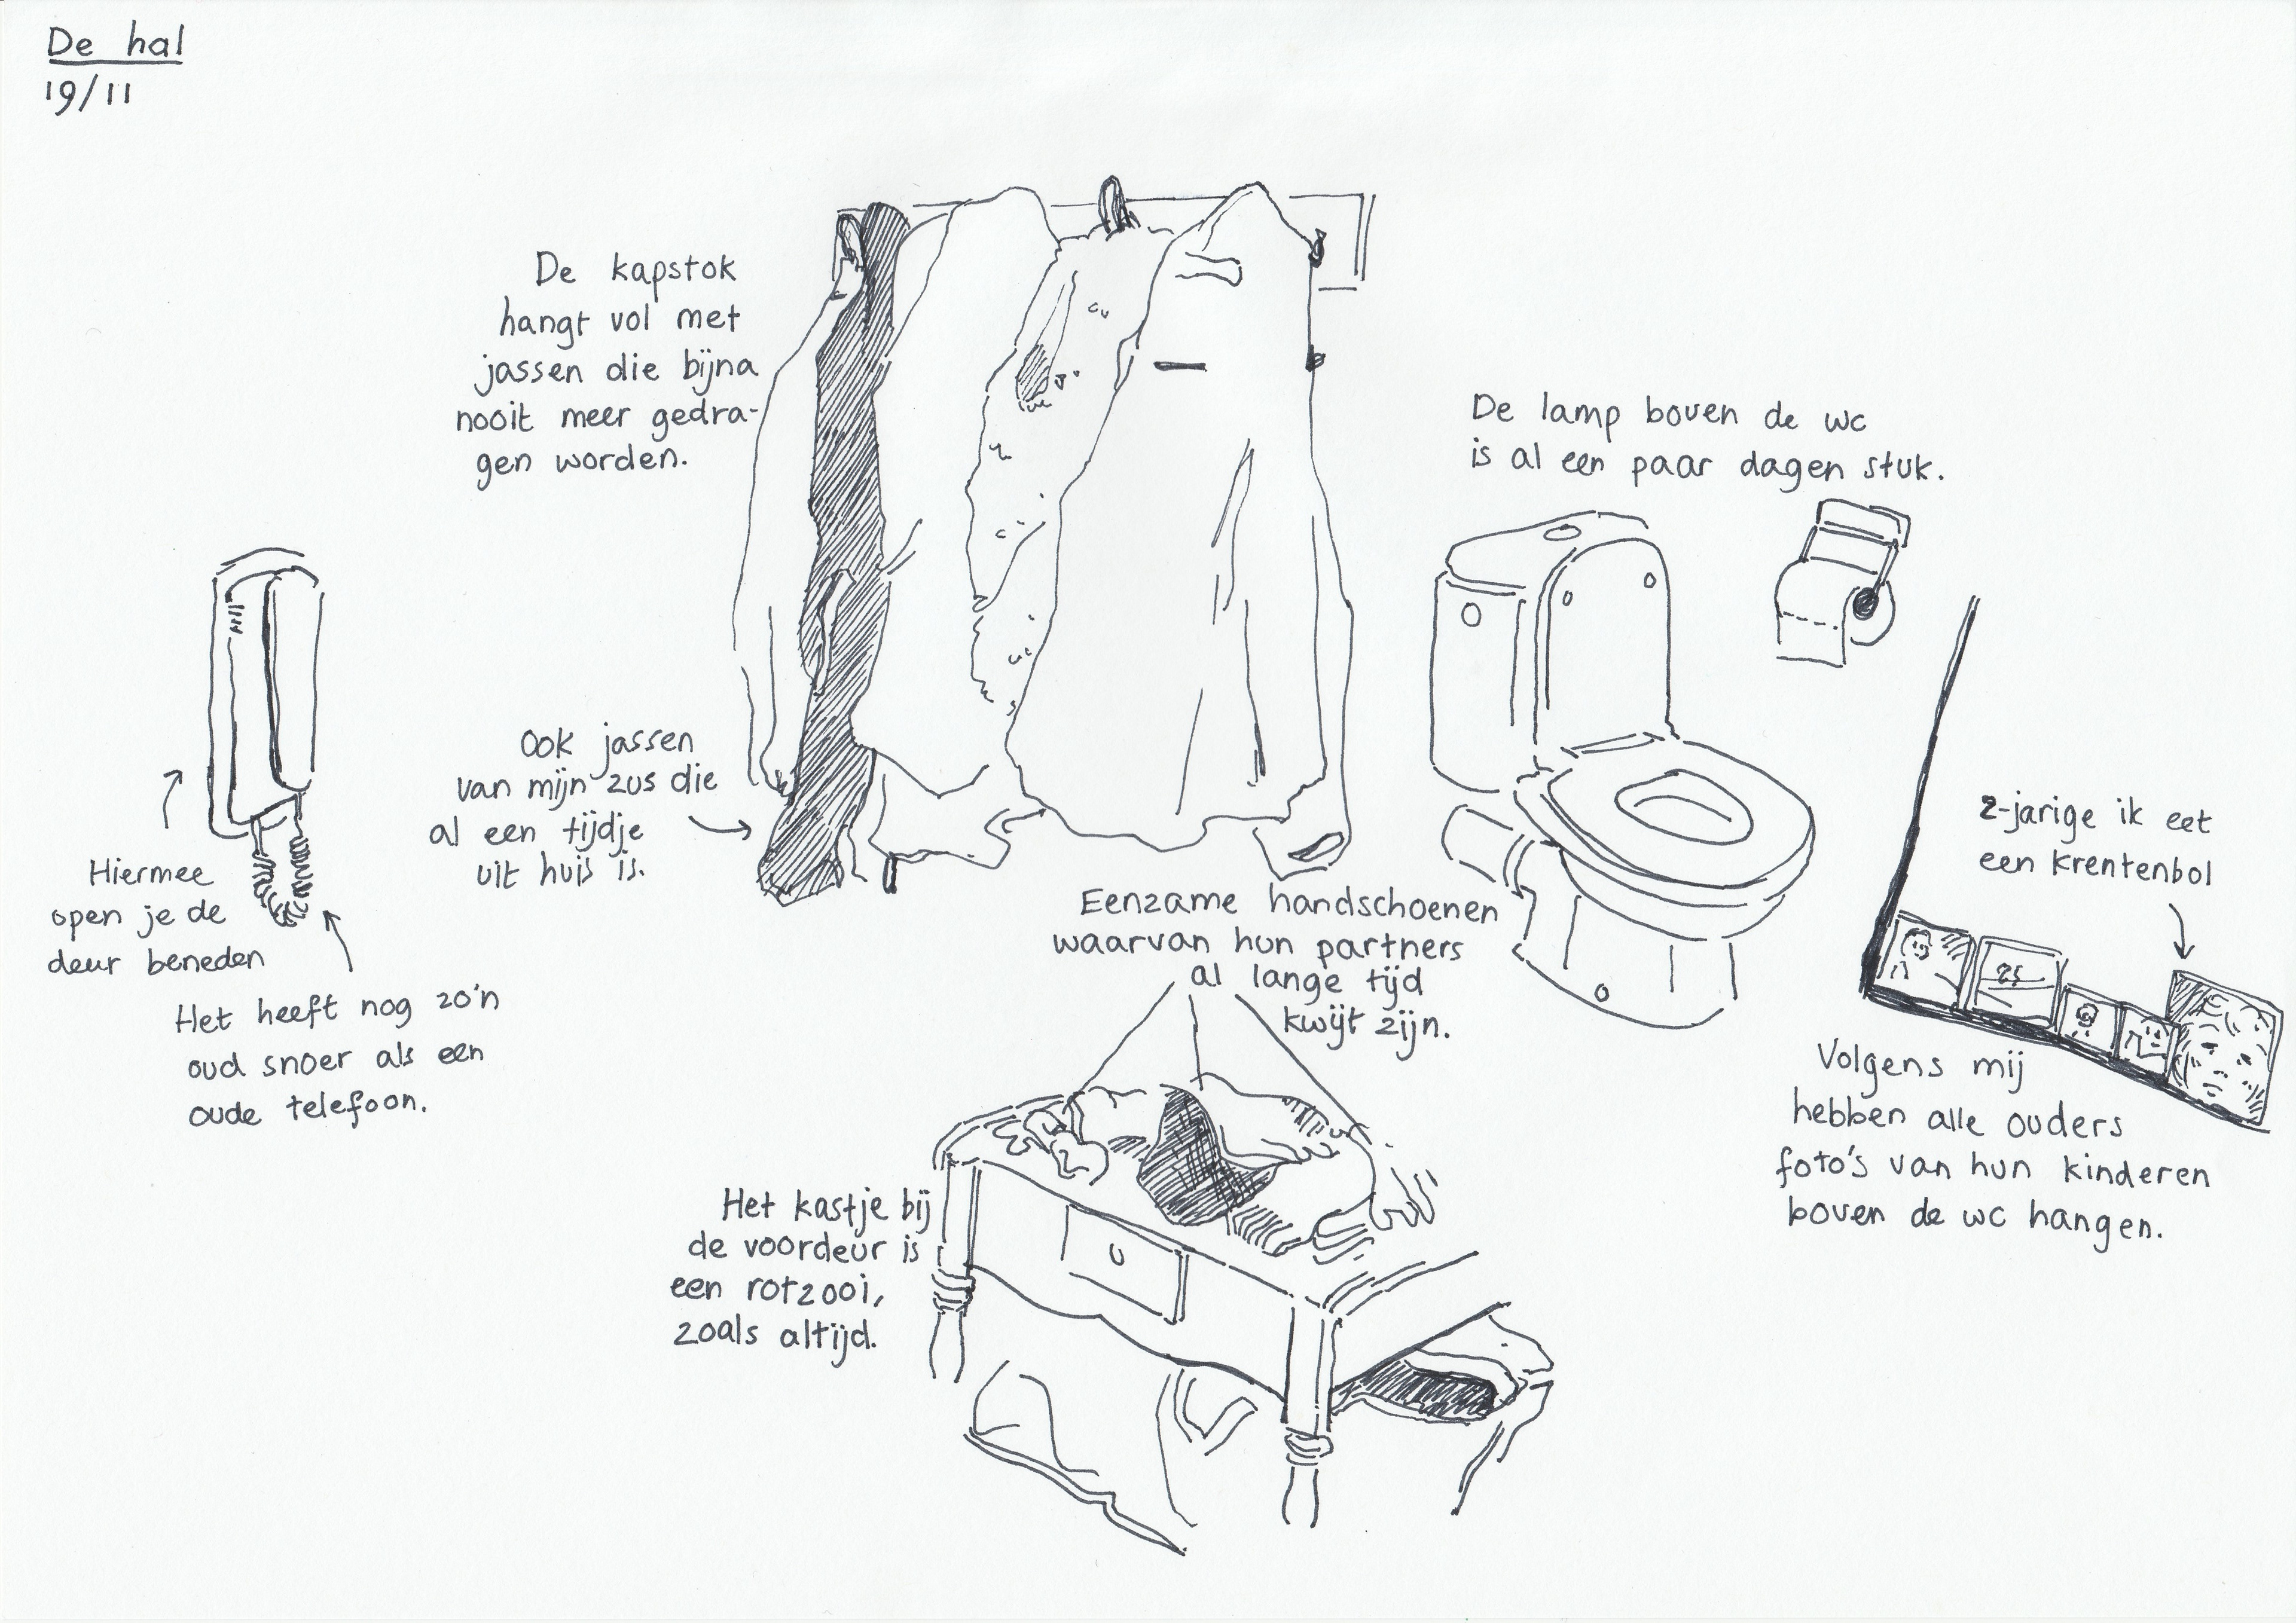 De hal
19/11
De kapstok
hangt vol met
jassen die bijna
nooit meer gedra-
gen worden.
De lamp boven de wc
is al een paar dagen stuk.
Ook jassen
van mijn zus die
al een tijdje
uit huis is.
2-jarige ik eet
een krentenbol
Hiermee
open je de
deur beneden
Het heeft nog zo'n
oud snoer als een
oude telefoon.
Eenzame handschoenen
waarvan hun partners
al lange tijd
kwijt zijn.
Volgens mij
hebben alle ouders
foto's van hun kinderen
boven de wc hangen.
Het kastje bij
de voordeur is
een rotzooi,
zoals altijd.